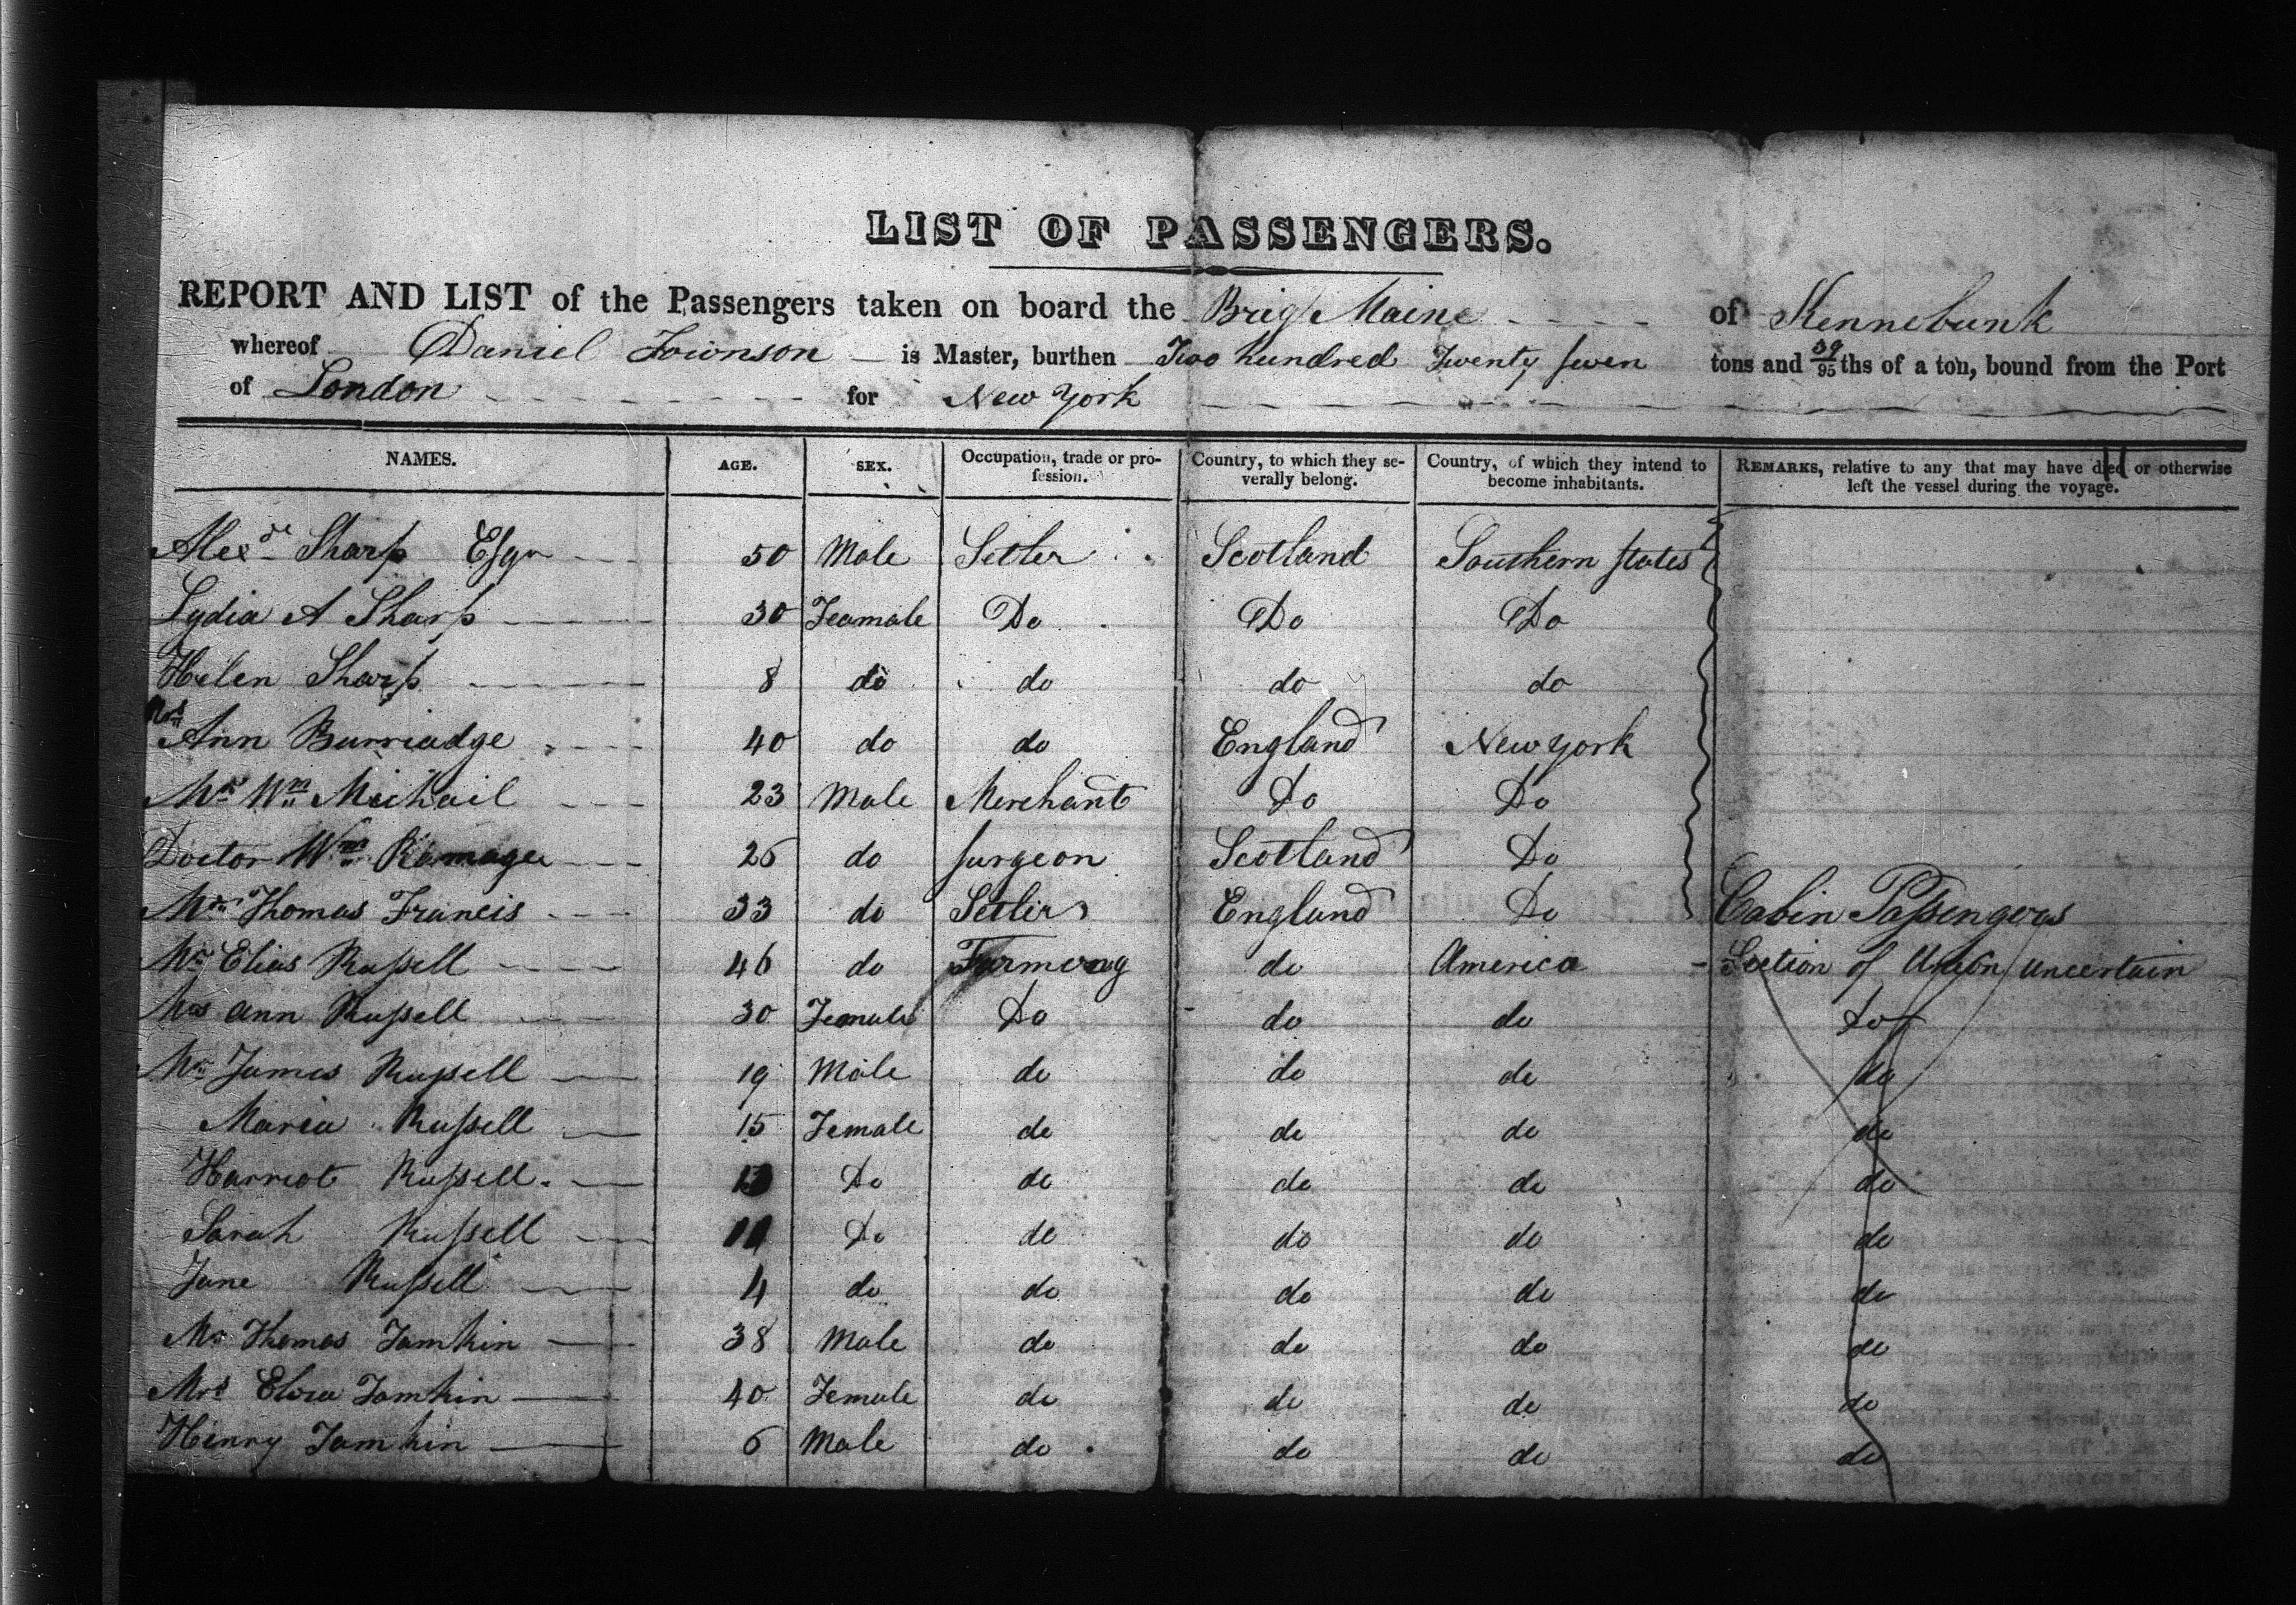 LIST OF PASSENGERS.
REPORT AND LIST of the Passengers taken on board the Brig Maine of Kennebunk
whereof Daniel Townson is Master, burthen Two hundred Twenty seven tons and 39/95 ths of a ton, bound from the Port
of London for New York
NAMES. AGE. SEX. Occupation, trade or pro- Country, to which they se- Country, of which they intend to REMARKS, relative to any that may have died or otherwise
fession. verally belong. become inhabitants. left the vessel during the voyage.
Alexdr Sharp Esqr 50 Male Setler Scotland Southern states
Lydia A Sharp 30 Feamale Do Do Do
Helen Sharp 8 do do do do
Mrs Ann Burriadge 40 do do England New York
Mr Wm Michail 23 Male Merchant Do Do
Doctor Wm Ramage 26 do surgeon Scotland Do
Mr Thomas Francis 33 do Setler England Do Cabin Passengers
Mr Elias Russell 46 do Farmong do America Section of Union uncertain
Mrs Ann Russell 30 Female Do do do Do
Mr James Russell 19 Male do do do do
Maria Russell 15 Female do do do do
Harriot Russell 13 Do do do do do
Sarah Russell 11 Do do do do do
Jane Russell 4 do do do do do
Mr Thomas Tamkin 38 Male do do do do
Mrs Eliza Tamkin 40 Female do do do do
Henry Tamkin 6 Male do do do do